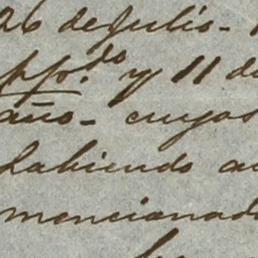 26 de Julio -
ppdo. y 11 de
año - cuyas
habiendo
mencionad